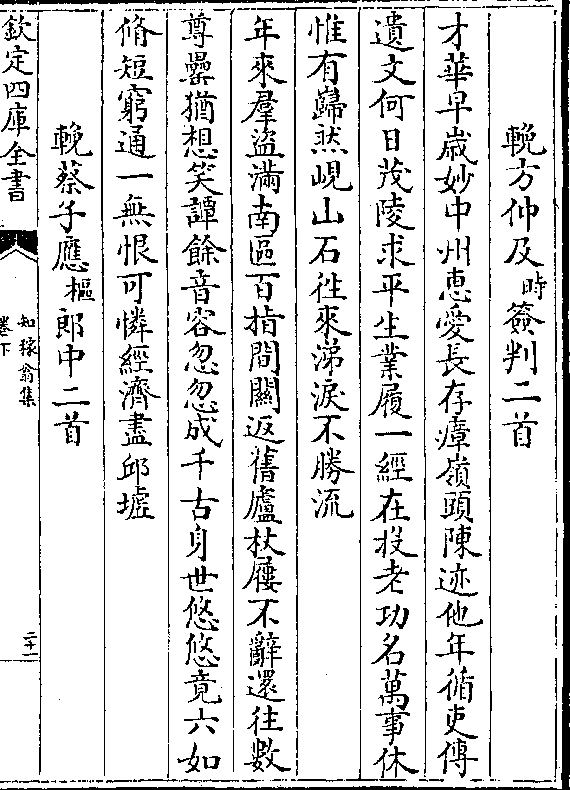 輓方仲及時簽判二首
才華早歳妙中州惠愛長存瘴嶺頭陳迹他年循吏傳
遺文何日茂陵求平生業履一經在投老功名萬事休
惟有巋然峴山石徃來涕淚不勝流
年來羣盜滿南區百指間關返舊廬杖屨不辭還往數
尊罍猶想笑譚餘音容忽忽成千古身世悠悠竟六如
脩短窮通一無恨可憐經濟盡邱墟
輓蔡子應樞郎中二首
欽定四庫全書
知稼翁集
卷下
二十一